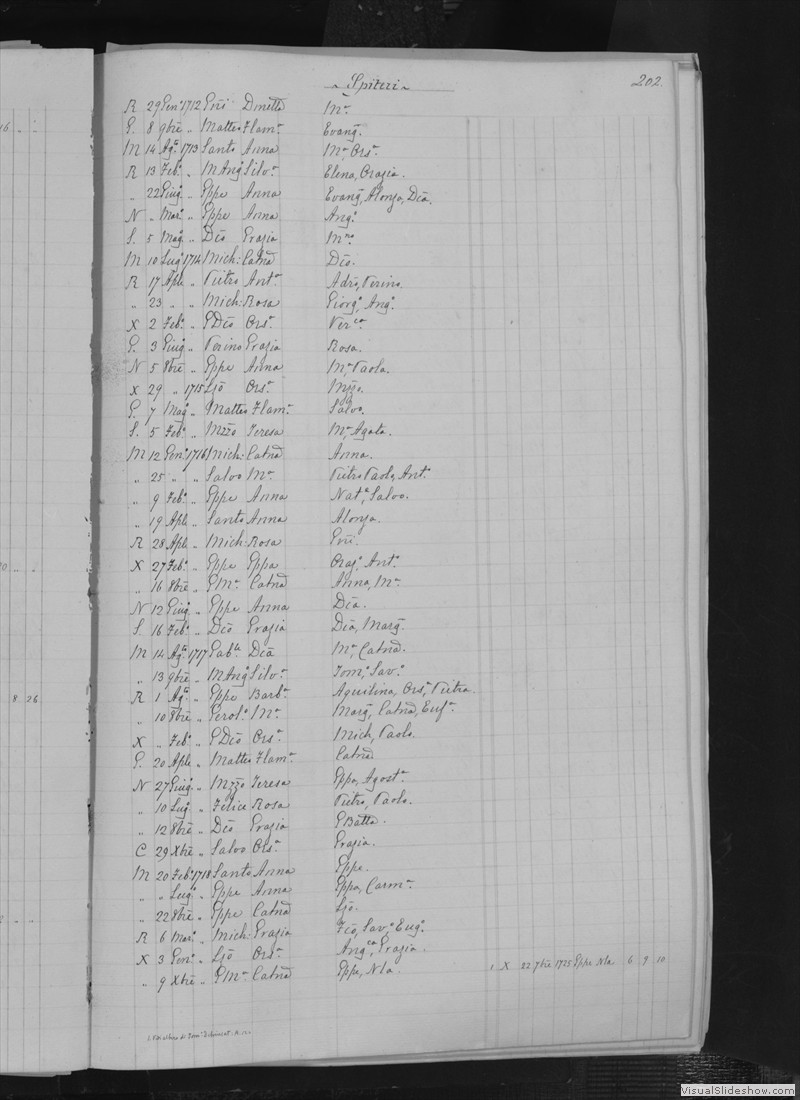 Spiteri
202.
R 29 Genº 1712 Gñi Dmetta Mª
G. 8 9bre „ Matteo Flamª Evang.
M 14 Agto 1713 Santo Anna Mª, Orsª.
R 13 Febº „ MAngº Silvª Elena, Orazia.
„ 22 Giugº „ Gppe Anna Evang, Alonza, Dca,
N „ Marº „ Gppe Anna Angª.
S. 5 Magº „ Dco Grazia Mna
M 10 Lugº 1714 Mich: Catna Dco.
R 17 Aple „ Pietro Antª Adrº, Perino.
„ 23 „ „ Mich: Rosa Giorgº, Angº.
X 2 Febº „ GDco Orsª Verca.
G. 3 Giugº „ Perino Grazia Rosa.
N 5 8bre „ Gppe Anna Mª Paola.
X 29 „ 1715 Ljo Orsª Mzzo.
G. 7 Magº „ Matteo Flamª Salvo.
S. 5 Febº „ Mzzo Teresa Mª, Agata.
M 12 Genº 1716 Mich: Catna Anna.
„ 25 „ „ Salvo Mª Pietro Paolo, Antº.
„ 9 Febº „ Gppe Anna Natº, Salvo.
„ 19 Aple „ Santo Anna Alonza.
R 28 Aple „ Mich: Rosa Gñi.
X 27 Febº „ Gppe Gppa Orazº, Antº.
„ 16 8bre „ GMª Catna Anna, Mª
N 12 Giugº „ Gppe Anna Dca.
S. 16 Febº „ Dco Grazia Dca, Marg.
M 14 Agto 1717 Gable Dca Mª, Catna.
„ 13 9bre „ MAngº Silvª Tomº, Savº.
R 1 Agto „ Gppe Barbª Aquilina, Orsª, Pietra.
„ 10 8bre „ Gerolº Mª Marg, Catna, Eufª.
X „ Febº „ GDco Orsª Mich, Paolo.
G. 20 Aple „ Matteo Flamª Catna
N 27 Giugº „ Mzzo Teresa Gppa, Agostª
„ 10 Lugº „ Felice Rosa Pietro, Paolo.
„ 12 8bre „ Dco Grazia GBatta.
C 29 Xbre „ Salvo Orsª Grazia.
M 20 Febº 1718 Santo Anna Gppe.
„ „ Lugº „ Gppe Anna Gppa, Carmª
„ 22 8bre „ Gppe Catna Ljo.
R 6 Marº „ Mich: Grazia Fco, Savº, Eugº.
X 3 Genº „ Ljo Orsª Angca, Grazia.
„ 9 Xbre „ GMª Catna Gppe, Nla. 1 X 22 7bre 1725 Gppe Nla 6 9 10
16
8 26
VisualSlideshow.com